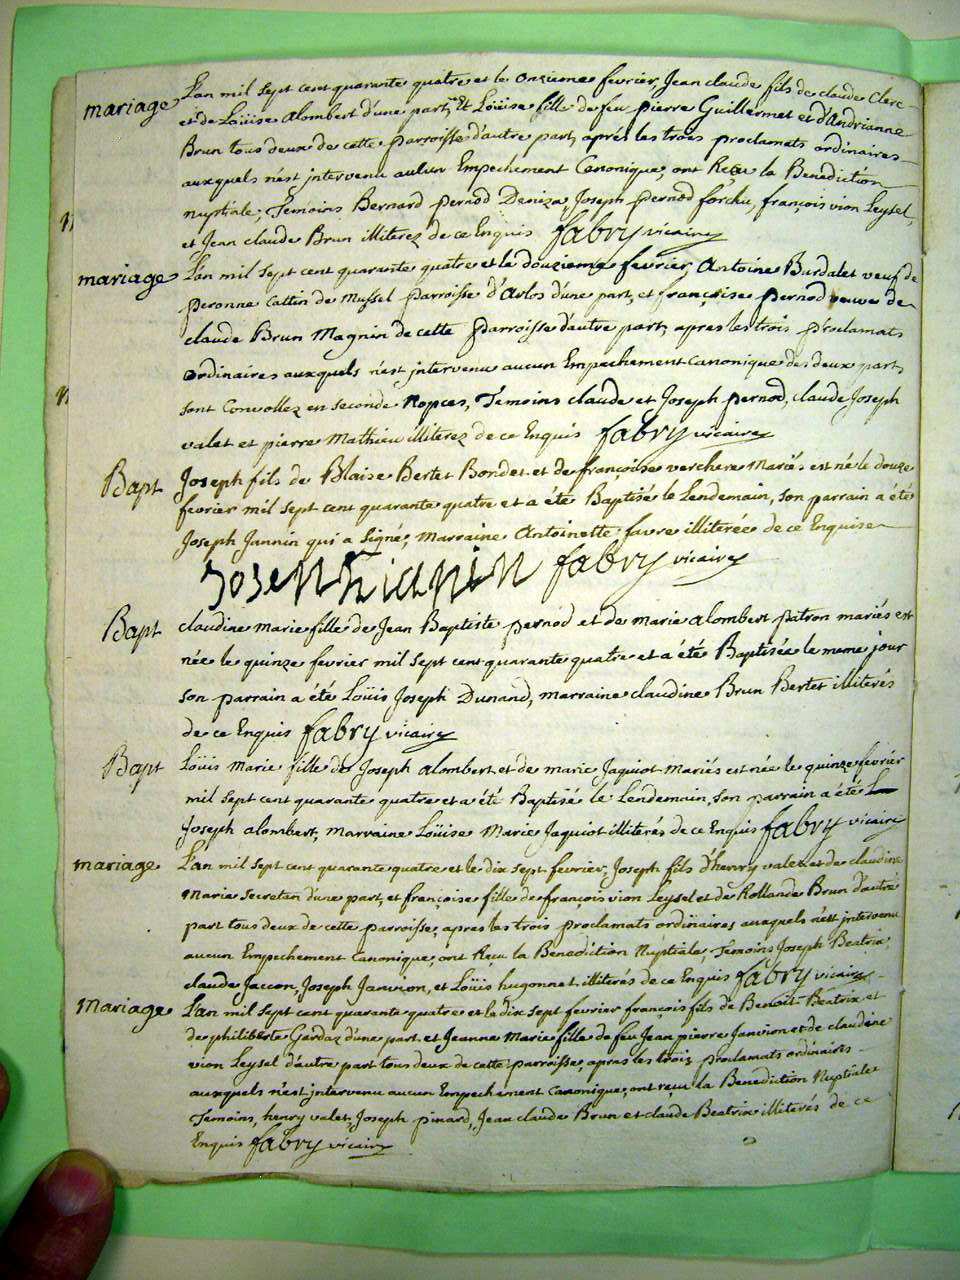 mariage L'an mil sept cent quarante quatre et le onzieme fevrier, Jean claude fils de claude Clerc
et de Loüise alombert d'une part, Et Loüise fille de feu pierre Guillermet et d'Andrianne
Brun tous deux de cette parroisse d'autre part, aprés les trois proclamats ordinaires
auxquels n'est jntervenu aucun Empechement Canonique, ont Reçu la Benediction
nuptiale, Temoins Bernard pernod Deniza, Joseph pernod forchu, françois vion Leysel,
et Jean claude Brun illiterez de ce Enquis fabry vicaire
mariage L'an mil sept cent quarante quatre et le douzieme fevrier, Antoine Burdalet veuf de
peronne Cattin de Mussel parroisse d'Arlos d'une part, et françoise pernod veuve de
claude Brun Magnin de cette parroisse d'autre part, apres les trois proclamats
ordinaires auxquels n'est jntervenu aucun Empechement canonique des deux parts
sont Convollez en seconde Nopces, Temoins claude et Joseph pernod, claude Joseph
valet et pierre Mathieu illiterez de ce Enquis fabry vicaire
Bapt Joseph fils de Blaise Bertet Bondet et de françoise verchere Mariés est né le douze
fevrier mil sept cent quarante quatre et a été Baptisé le Lendemain, son parrain a été
Joseph Jannin qui a signé, Marraine Antoinette favre illiterée de ce Enquise
Joseph ianin fabry vicaire
Bapt claudine Marie fille de Jean Baptiste pernod et de Marie alombert patron mariés est
née le quinze fevrier mil sept cent quarante quatre et a été Baptisée le meme jour
son parrain a été Loüis Joseph Dunand, marraine claudine Brun Bertet illiterés
de ce Enquis fabry vicaire
Bapt Loüis Marie fille de Joseph alombert et de marie Jaquiot Mariés est née le quinze fevrier
mil sept cent quarante quatre et a été Baptisé le Lendemain, son parrain a été
Joseph alombert, marraine Loüise Marie Jaquiot illiterés de ce Enquis fabry vicaire
mariage L'an mil sept cent quarante quatre et le dix sept fevrier, Joseph fils d'henry valet et de claudine
Marie Secretan d'une part, et françoise fille de françois vion Leysel et de Rollande Brun d'autre
part tous deux de cette parroisse, apres les trois proclamats ordinaires auxquels n'est jntervenu
aucun Empechement Canonique, ont Reçu la Benediction Nuptiale, Temoins Joseph Beatrix,
claude Jaccon, Joseph Janvion, et Loüis hugonnet illiterés de ce Enquis fabry vicaire
Mariage L'an mil sept cent quarante quatre et le dix sept fevrier françois fils de Benoit Beatrix et
de philiberte Gardaz d'une part et Jeanne Marie fille de feu Jean pierre Janvion et de claudine
vion Leysel d'autre part tous deux de cette parroisse, apres les trois proclamats ordinaires
auxquels n'est jntervenu aucun Empechement Canonique, ont reçu la Benediction Nuptiale
Temoins, henry valet, Joseph pinard, Jean claude Brun et claude Beatrix illiterés de ce
Enquis fabry vicaire